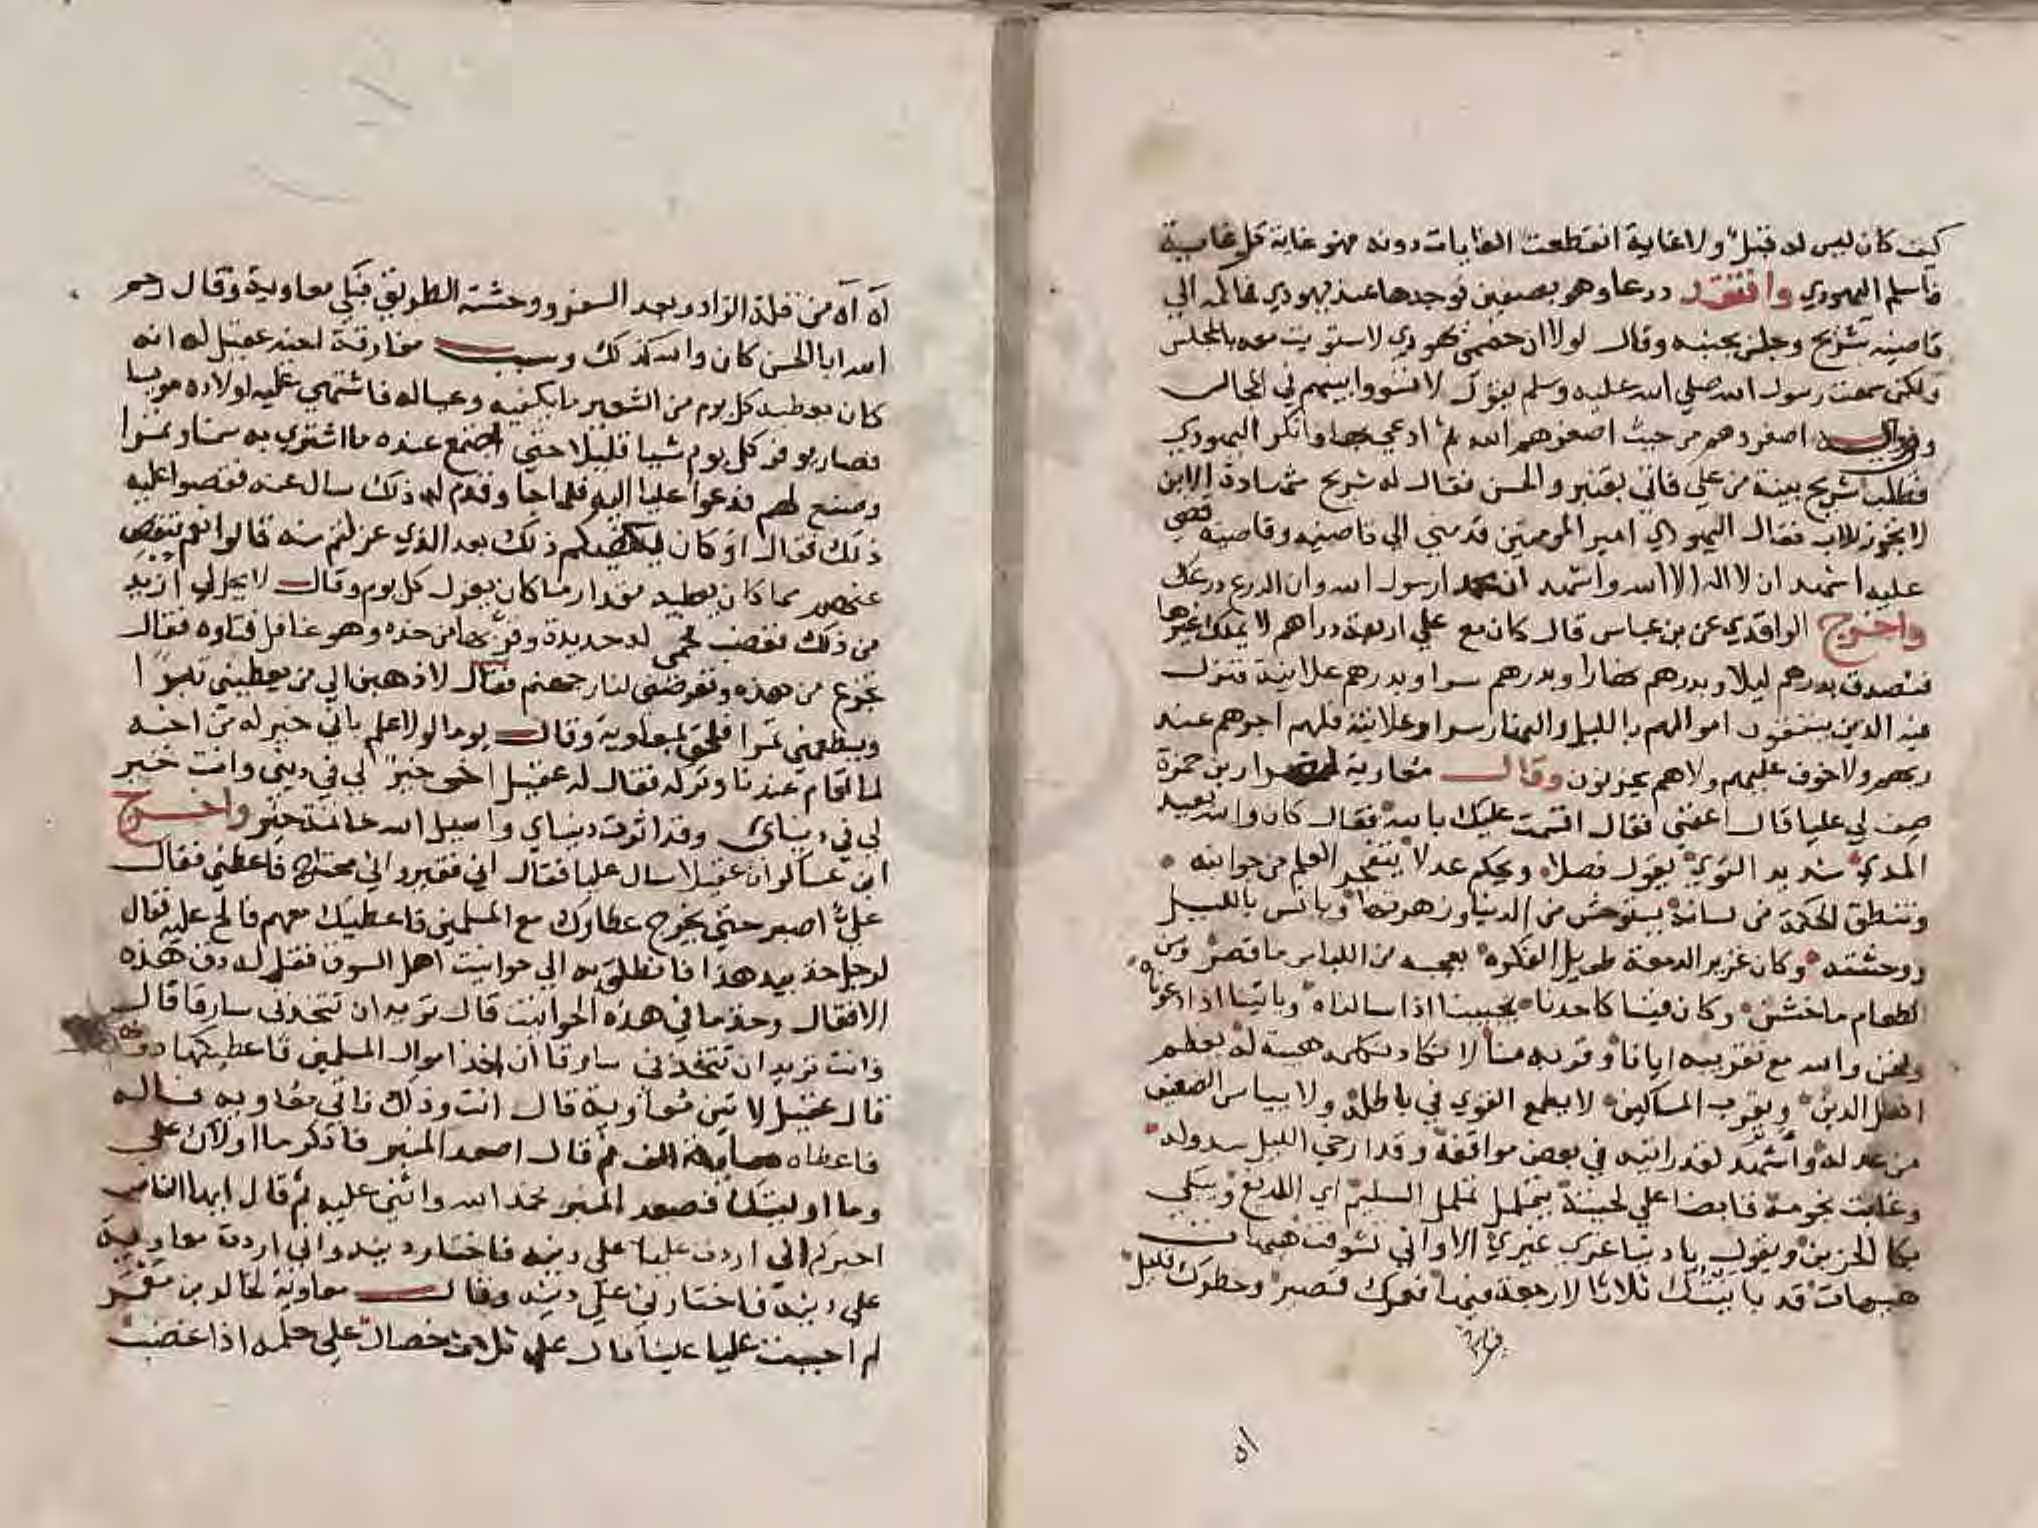 كيف كان ليس له قبل ولا غاية انقطعت الغايات دونه فهو غاية كل غاية
فاسلم اليهودي وافتقد درعا وهو بصفين فوجدها عند يهودي فحاكمه الي
قاضيه شريح وجلس بجنبه وقال لولا ان خصمي يهودي لاستويت معه بالمجلس
ولكني سمعت رسول الله صلي الله عليه وسلم يقول لا تسووا بينهم في المجالس
وفي رواية اصغروهم من حيث اصغرهم الله ثم ادعي بها وانكر اليهودي
فطلب شريح بينة من علي فاتي بقنبر والحسن فقال له شريح شهادة الابن
لا تجوز للاب فقال اليهودي امير المومنين قدمني الي قاضيه وقاضيه قضي
عليه اشهد ان لا اله الا الله واشهد ان محمد ارسول الله وان الدرع درعك
واخرج الواقدي عن بن عباس قال كان مع علي اربعة دراهم لا يملك غيرها
فتصدق بدرهم ليلا وبدرهم نهارا وبدرهم سرا وبدرهم علانية فنزل
فيه الذين ينفقون اموالهم بالليل والنهار سرا وعلانية فلهم اجرهم عند
ربهم ولا خوف عليهم ولا هم يحزنون وقال معاوية لضرار بن حمزة
صف لي عليا قال اعفني فقال اقسمت عليك بالله فقال كان والله بعيد
المدي شديد القوي يقول فصلا ويحكم عدلا يتفجر العلم من جوانبه
وتنطق الحكمة من لسانه يستوحش من الدنيا وزهوتها ويانس بالليل
ووحشته وكان غزير الدمعة طويل الفكره يعجبه من اللباس ما قصر ومن
الطعام ما خشن وكان فينا كاحدنا يجيبنا اذا سالناه وياتينا اذا دعوناه
ونحن والله مع تقريبه ايانا وقربه منا لا نكاد نكلمه هيبة له يعظم
اهل الدين ويقرب المساكين لا يطمع القوي في باطله ولا يياس الضعيف
من عدله واشهد لقد رايته في بعض مواقفه وقد ارخي الليل سدوله
وغابت نجومه قابضا علي لحيته يتململ تململ السليم اي اللديغ ويبكي
بكا الحزين ويقول يا دنيا غري غيري الي او الي تشوفت هيهات
هيهات قد باينتك ثلاثا لا رجعة فيها فعمرك قصير وخطرك قليل
اه اه من قلة الزاد وبعد السفر ووحشة الطريق فبكي معاوية وقال رحم
الله ابا الحسن كان والله كذلك وسبب مفارقة اخيه عقيل له انه
كان يعطيه كل يوم من الشعير ما يكفيه وعياله فاشتهي عليه اولاده مريسا
فصار يوفر كل يوم شيا قليلا حتي اجتمع عنده ما اشتري به سمنا وتمرا
وصنع لهم فدعوا عليا اليه فلما جا وقدم له ذلك سال عنه فقصوا عليه
ذلك فقال او كان يكفيكم ذلك بعد الذي عزلتم منه قالوا نعم فنقص
عنهم مما كان يعطيه مقدار ما كان يعزل كل يوم وقال لا يحل لي ازيد
من ذلك فغضب فحمي له حديدة وقربها من خده وهو غافل فتاوه فقال
تجزع من هذه وتعرضني لنار جهنم فقال لاذهبن الي من يعطيني تبرا
ويطعمني تمرا فلحق بمعاوية وقال يوما لولا علم باني خير له من اخيه
لما اقام عندنا وتركه فقال له عقيل اخي خير لي في ديني وانت خير
لي في دنياي وقد اثرت دنياي واسيل الله خاتمة خير واخرج
ابن عساكر ان عقيلا سال عليا فقال اني فقير واني محتاج فاعطني فقال
علي اصبر حتي يخرج عطاوك مع المسلمين فاعطيك معهم فالح عليه فقال
لرجل خذ بيد هذا فانطلق به الي حوانيت اهل السوق فقل له دق هذه
الاقفال وخذ ما في هذه الحوانيت قال تريد ان تتخذني سارقا قال
وانت تريد ان تتخذني سارقا ان اخذ اموال المسلمين فاعطيكها دونهم
قال عقيل لاتين معاوية قال انت وذلك فاتي معاويه فساله
فاعطاه مماية الف ثم قال اصعد المنبر فاذكر ما اولاك علي
وما اوليتك فصعد المنبر فحمد الله واثني عليه ثم قال ايها الناس
اخبركم اني اردت عليا علي دينه فاختار دينه واني اردت معاوية
علي دينه فاختارني علي دينه وقال معاوية لخالد بن معمر
لم احببت عليا علينا قال علي ثلاث خصال علي حلمه اذا غضب